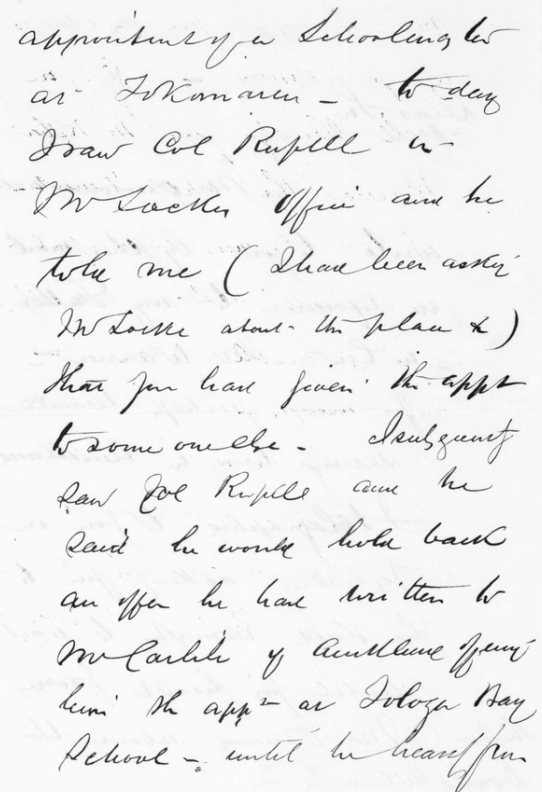 appointment of a Schoolmaster
at Tokomaru – to day
I saw Col Russell in
Mr Lockes office and he
told me (I had been asking
Mr Locke about the place &)
that you had given the appt
to some one else – I subsequently
saw Col Russell and he
said he would hold back
an offer he had written to
Mr of offering
him the appt at Tologa Bay
School – until he hears from